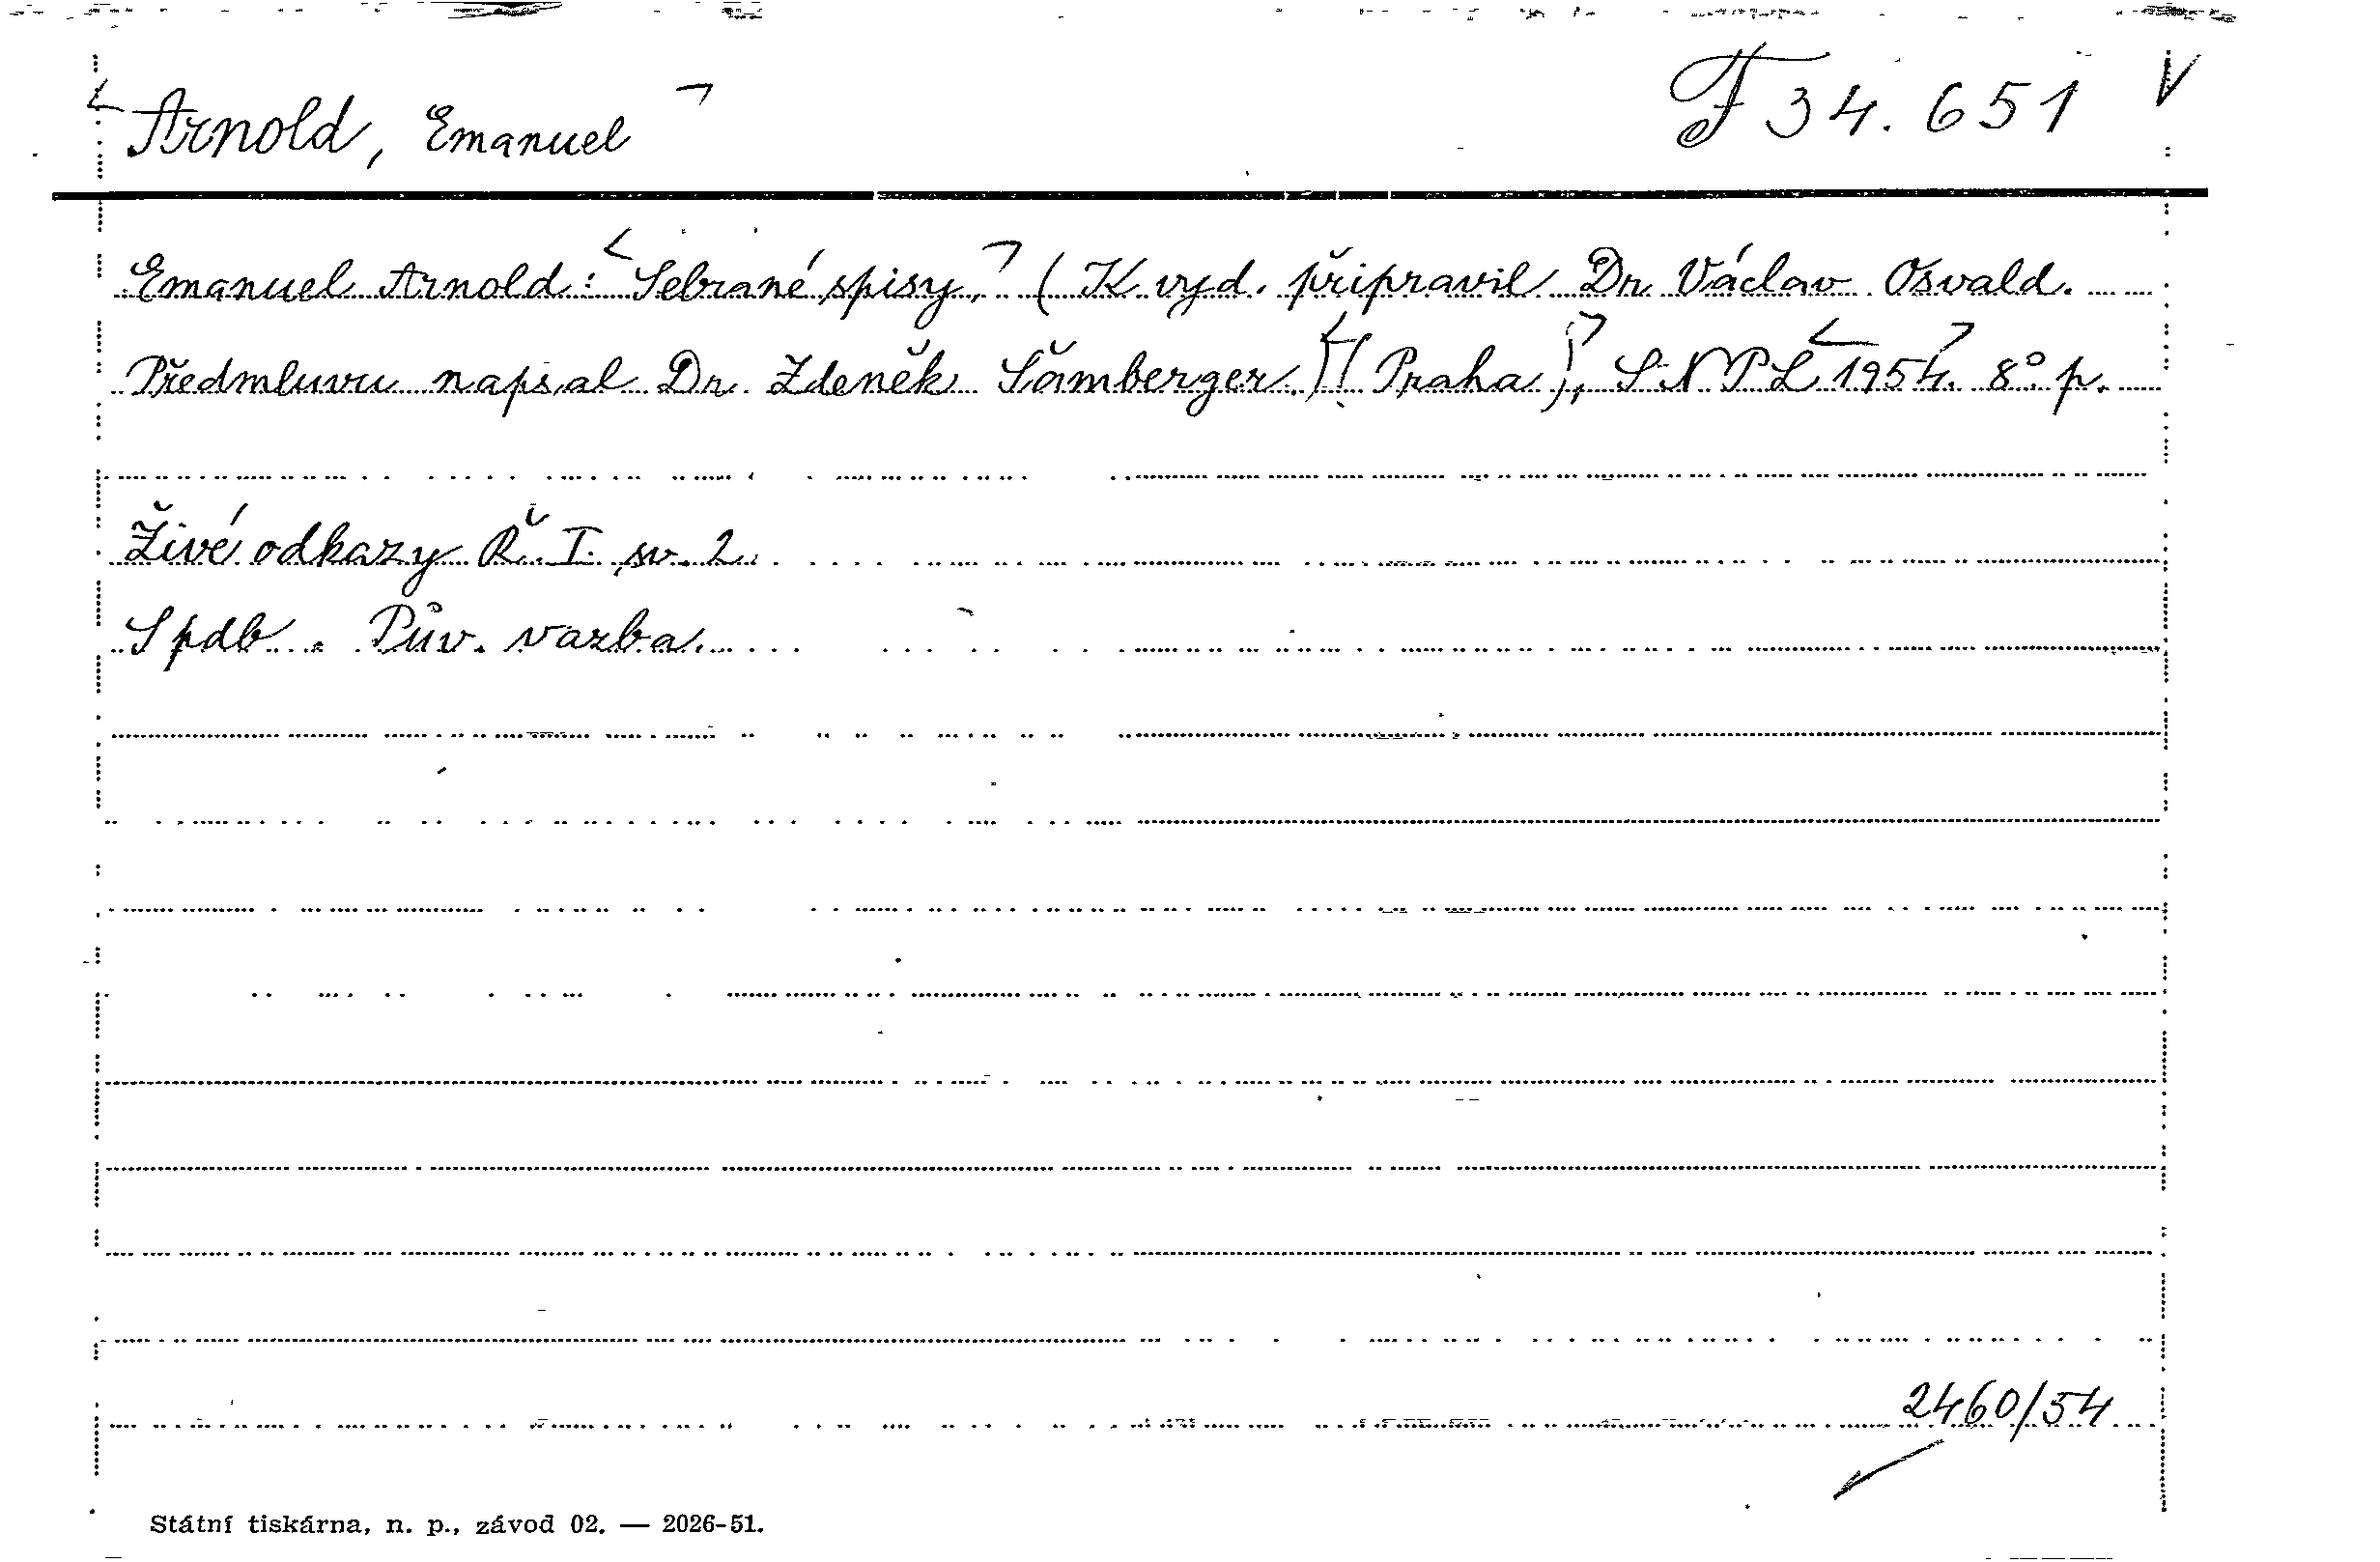 Arnold, Emanuel F 34.651
Emanuel Arnold: Sebrané spisy. (K vyd. připravil Dr Václav Osvald.
Předmluvu napsal Dr. Zdeněk Šamberger.) (Praha), SNPL 1954. 8° p.
Živé odkazy Ř. I. sv. 2.
Spdb. Pův. vazba.
2460/54
Státní tiskárna, n. p., závod 02. — 2026-51.